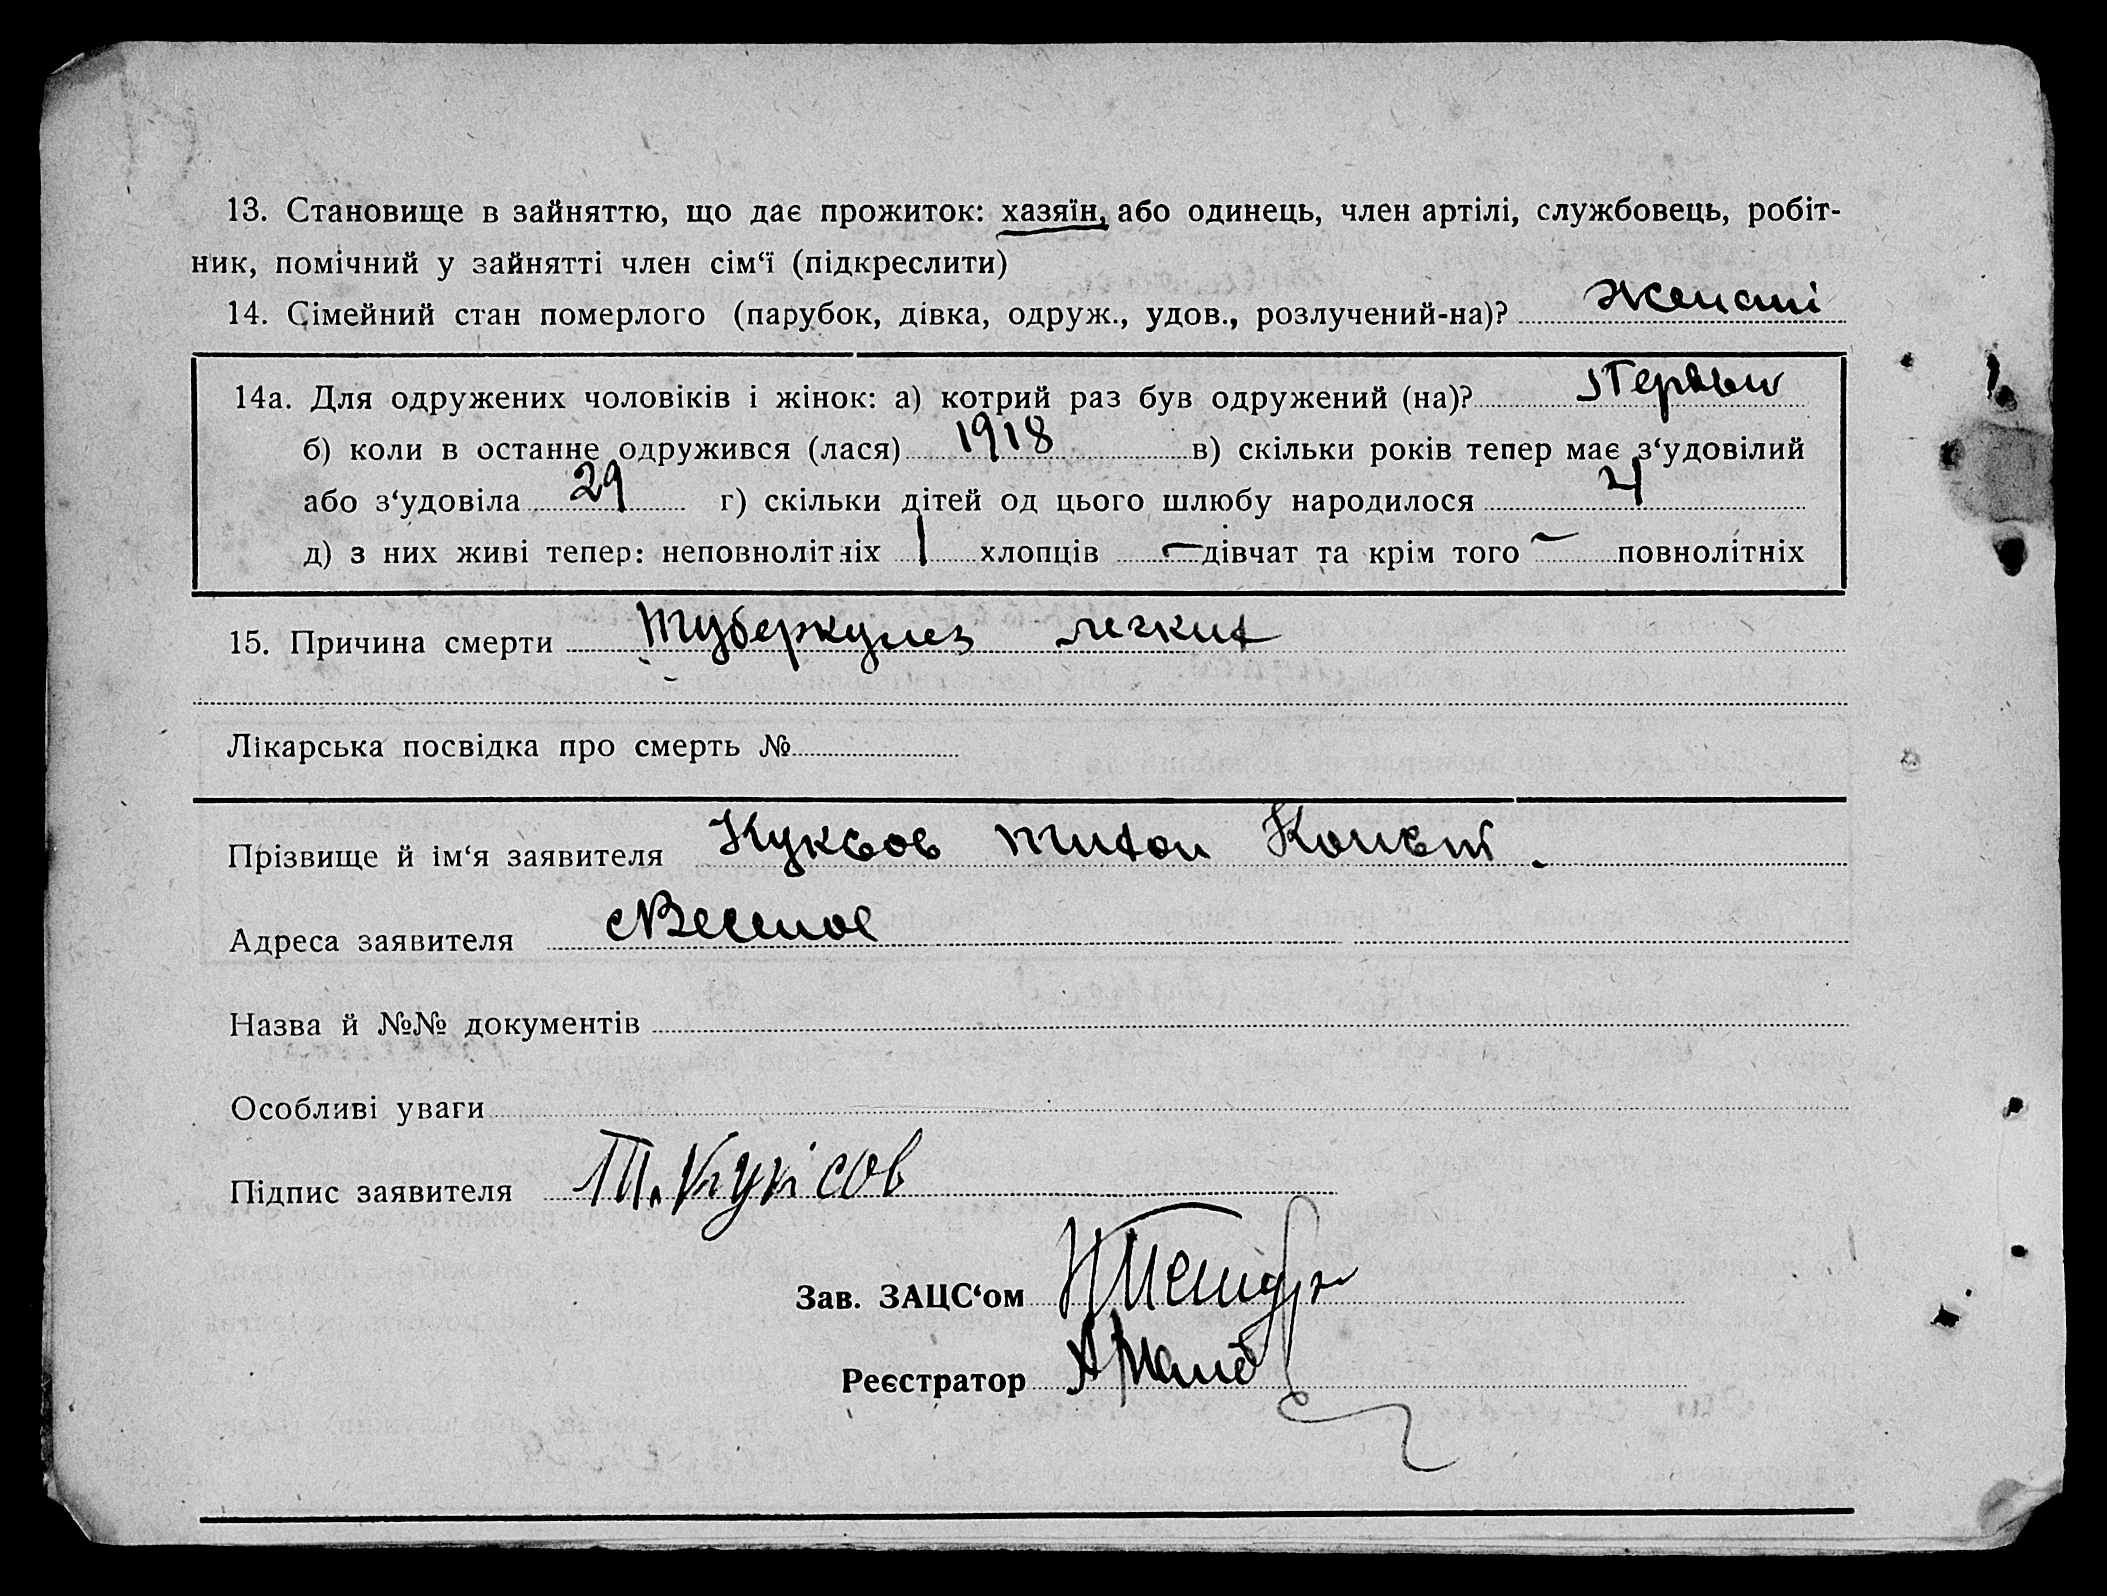 13. Становище в зайняттю, що дає прожиток: хазяїн, або одинець, член артілі, службовець, робіт-
ник, помічний у зайнятті член сім‘ї (підкреслити)
14. Сімейний стан померлого (парубок, дівка, одруж., удов., розлучений-на)? женаті
14а. Для одружених чоловіків і жінок: а) котрий раз був одружений (на)? Первый
б) коли в останнє одружився (лася) 1918 в) скільки років тепер має з‘удовілий
або з‘удовіла 29 г) скільки дітей од цього шлюбу народилося 4
д) з них живі тепер: неповнолітніх 1 хлопців — дівчат та крім того — повнолітніх
15. Причина смерти туберкулез легких
Лікарська посвідка про смерть №
Прізвище й ім‘я заявителя Куксов Тихон Конст.
Адреса заявителя
Назва й №№ документів
Особливі уваги
Підпис заявителя Т. Куксов
Зав. ЗАЦС‘ом
Реєстратор